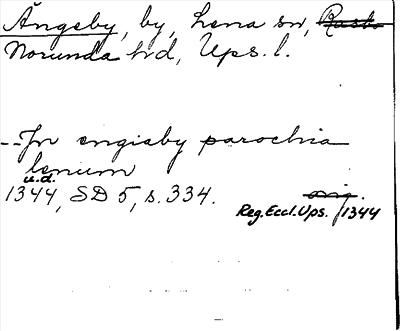 Ängeby, by, Lena sn, Rasbo
Norunda hd, Ups. l.
--In engiaby parochia
lenum
u.d.
1344, SD 5, s. 334.
orig.
Reg. Eccl. Ups. /1344